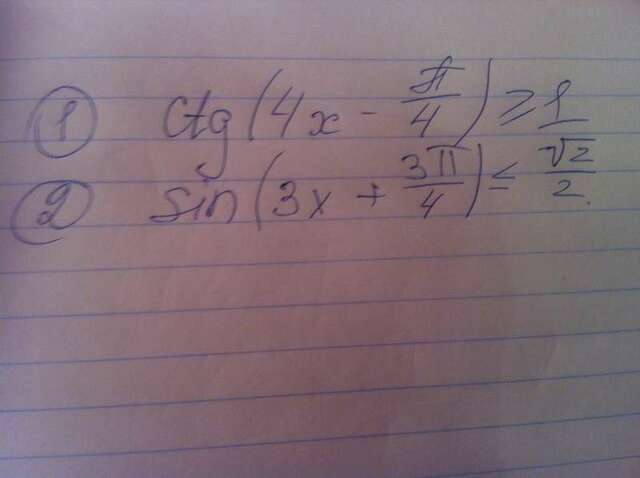 ① ctg(4x - π/4) ≥ 1
② sin(3x + 3π/4) ≤ √2/2.